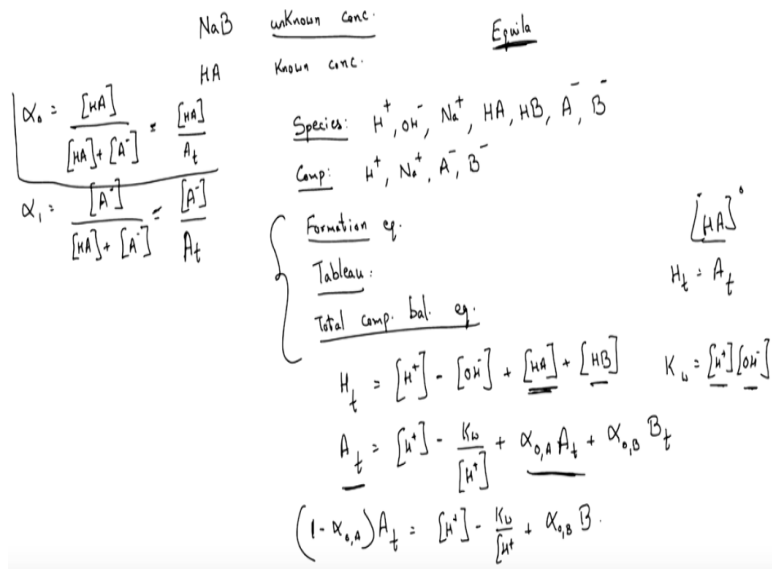 NaB unknown conc.
Equila
HA Known conc.
α₀ = [HA] / [HA] + [A⁻] = [HA] / A_t
α₁ = [A⁻] / [HA] + [A⁻] = [A⁻] / A_t
Species: H⁺, OH⁻, Na⁺, HA, HB, A⁻, B⁻
Comp: H⁺, Na⁺, A⁻, B⁻
Formation eq.
Tableau:
Total comp. bal. eq.
[HA]⁰
H_t = A_t
H_t = [H⁺] - [OH⁻] + [HA] + [HB]
K_w = [H⁺][OH⁻]
A_t = [H⁺] - K_w / [H⁺] + α₀,A A_t + α₀,B B_t
(1 - α₀,A) A_t = [H⁺] - K_w / [H⁺ + α₀,B B.